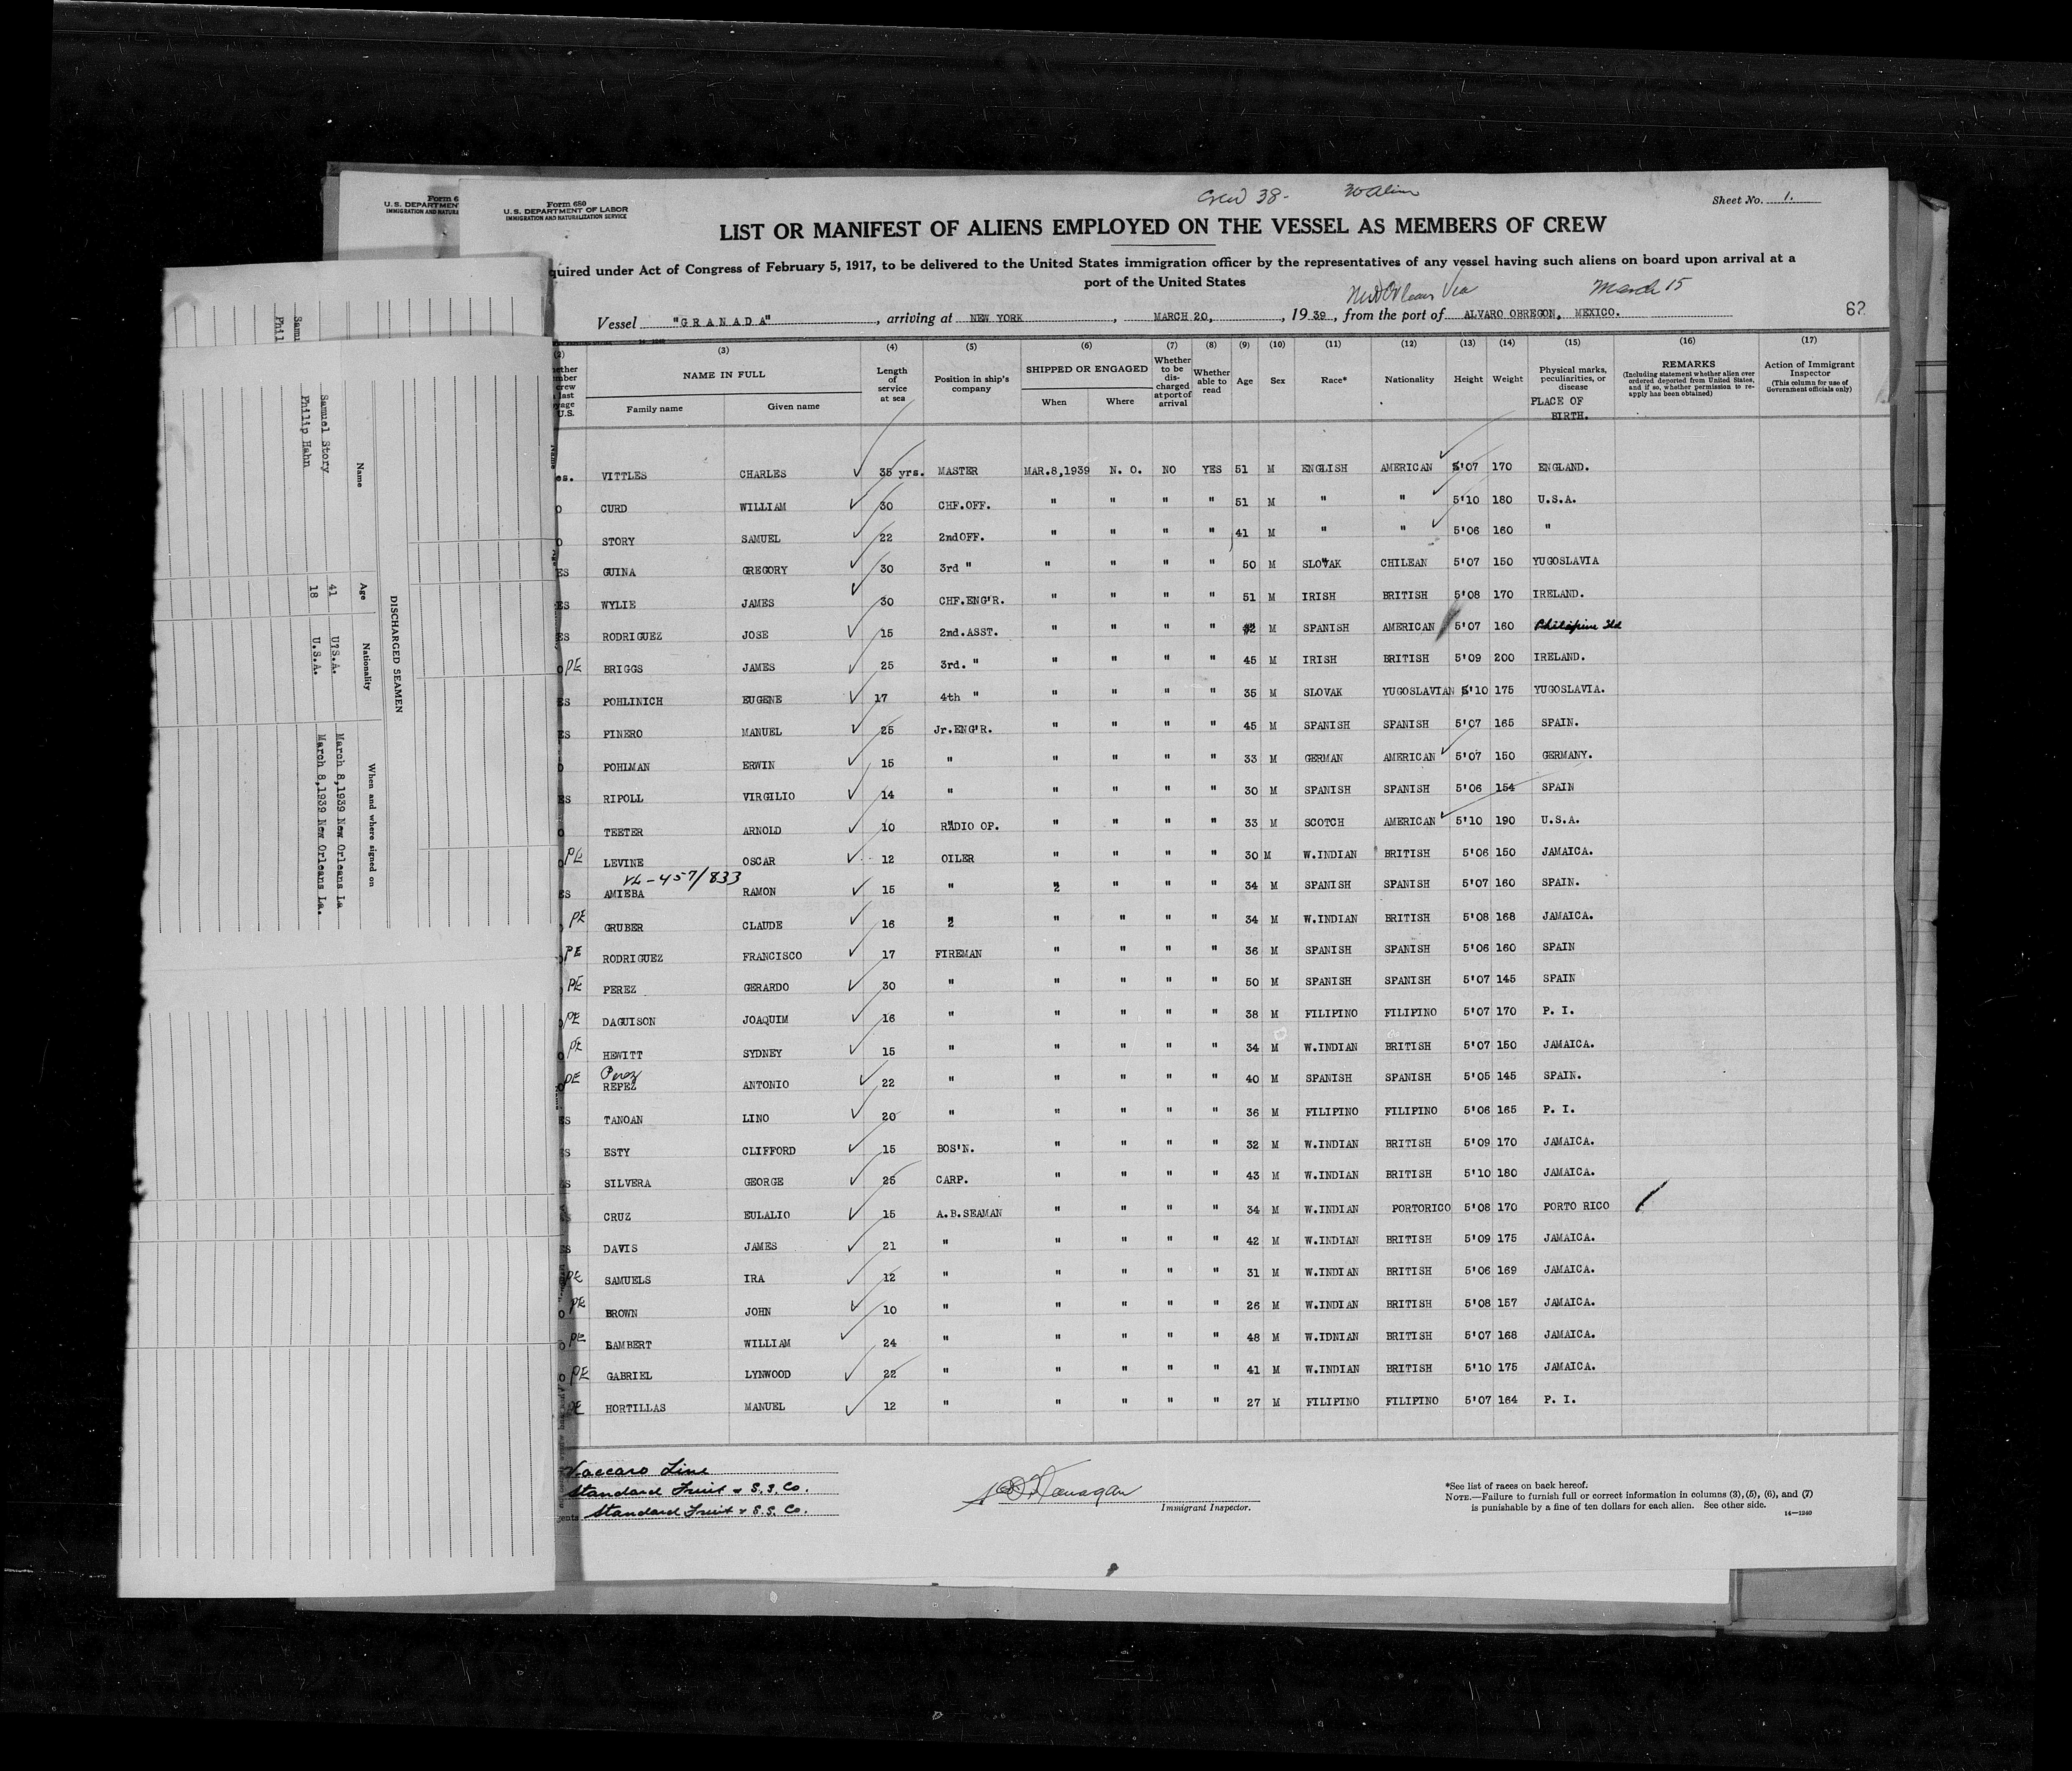 Form 680
U.S. DEPARTMENT OF LABOR
IMMIGRATION AND NATURALIZATION SERVICE
Crew 38-
Sheet No. 1.
LIST OR MANIFEST OF ALIENS EMPLOYED ON THE VESSEL AS MEMBERS OF CREW
quired under Act of Congress of February 5, 1917, to be delivered to the United States immigration officer by the representatives of any vessel having such aliens on board upon arrival at a
port of the United States
New Orleans Via March 15
Vessel "GRANADA", arriving at NEW YORK, MARCH 20, 1939, from the port of ALVARO OBREGON, MEXICO.
62
(2) (3) (4) (5) (6) (7) (8) (9) (10) (11) (12) (13) (14) (15) (16) (17)
NAME IN FULL
Family name Given name
Length of service at sea
Position in ship's company
SHIPPED OR ENGAGED
When Where
Whether to be discharged at port of arrival
Whether able to read
Age Sex Race* Nationality Height Weight
Physical marks, peculiarities, or disease
PLACE OF BIRTH.
REMARKS
(Including statement whether alien ever ordered deported from United States, and if so, whether permission to reapply has been obtained)
Action of Immigrant Inspector
(This column for use of Government officials only)
es. VITTLES CHARLES 35 yrs. MASTER MAR.8,1939 N. O. NO YES 51 M ENGLISH AMERICAN 5'07 170 ENGLAND.
CURD WILLIAM 30 CHF.OFF. " " " " 51 M " " 5'10 180 U.S.A.
STORY SAMUEL 22 2ndOFF. " " " " 41 M " " 5'06 160 "
ES GUINA GREGORY 30 3rd " " " " " 50 M SLOVAK CHILEAN 5'07 150 YUGOSLAVIA
ES WYLIE JAMES 30 CHF.ENG'R. " " " " 51 M IRISH BRITISH 5'08 170 IRELAND.
ES RODRIGUEZ JOSE 15 2nd.ASST. " " " " 42 M SPANISH AMERICAN 5'07 160 Philipine Ild
O PE BRIGGS JAMES 25 3rd. " " " " " 45 M IRISH BRITISH 5'09 200 IRELAND.
ES POHLINICH EUGENE 17 4th " " " " " 35 M SLOVAK YUGOSLAVIAN 5'10 175 YUGOSLAVIA.
ES PINERO MANUEL 25 Jr.ENG'R. " " " " 45 M SPANISH SPANISH 5'07 165 SPAIN.
POHLMAN ERWIN 15 " " " " " 33 M GERMAN AMERICAN 5'07 150 GERMANY.
ES RIPOLL VIRGILIO 14 " " " " " 30 M SPANISH SPANISH 5'06 154 SPAIN
TEETER ARNOLD 10 RADIO OP. " " " " 33 M SCOTCH AMERICAN 5'10 190 U.S.A.
PE LEVINE OSCAR 12 OILER " " " " 30 M W.INDIAN BRITISH 5'06 150 JAMAICA.
457/833
ES AMIEBA RAMON 15 " " " " " 34 M SPANISH SPANISH 5'07 160 SPAIN.
PE GRUBER CLAUDE 16 " " " " " 34 M W.INDIAN BRITISH 5'08 168 JAMAICA.
PE RODRIGUEZ FRANCISCO 17 FIREMAN " " " " 36 M SPANISH SPANISH 5'06 160 SPAIN
PE PEREZ GERARDO 30 " " " " " 50 M SPANISH SPANISH 5'07 145 SPAIN
PE DAGUISON JOAQUIM 16 " " " " " 38 M FILIPINO FILIPINO 5'07 170 P. I.
PE HEWITT SYDNEY 15 " " " " " 34 M W.INDIAN BRITISH 5'07 150 JAMAICA.
Perez
PE REPEZ ANTONIO 22 " " " " " 40 M SPANISH SPANISH 5'05 145 SPAIN.
ES TANOAN LINO 20 " " " " " 36 M FILIPINO FILIPINO 5'06 165 P. I.
S ESTY CLIFFORD 15 BOS'N. " " " " 32 M W.INDIAN BRITISH 5'09 170 JAMAICA.
SILVERA GEORGE 25 CARP. " " " " 43 M W.INDIAN BRITISH 5'10 180 JAMAICA.
CRUZ EULALIO 15 A.B.SEAMAN " " " " 34 M W.INDIAN PORTORICO 5'08 170 PORTO RICO
ES DAVIS JAMES 21 " " " " " 42 M W.INDIAN BRITISH 5'09 175 JAMAICA.
PE SAMUELS IRA 12 " " " " " 31 M W.INDIAN BRITISH 5'06 169 JAMAICA.
O PE BROWN JOHN 10 " " " " " 26 M W.INDIAN BRITISH 5'08 157 JAMAICA.
O PE LAMBERT WILLIAM 24 " " " " " 48 M W.IDNIAN BRITISH 5'07 168 JAMAICA.
O PE GABRIEL LYNWOOD 22 " " " " " 41 M W.INDIAN BRITISH 5'10 175 JAMAICA.
PE HORTILLAS MANUEL 12 " " " " " 27 M FILIPINO FILIPINO 5'07 164 P. I.
Vaccaro Line
Standard Fruit & S.S. Co.
Standard Fruit & S.S. Co.
Immigrant Inspector.
*See list of races on back hereof.
NOTE.—Failure to furnish full or correct information in columns (3), (5), (6), and (7)
is punishable by a fine of ten dollars for each alien. See other side.
14—1240
DISCHARGED SEAMEN
Name Age Nationality When and where signed on
Samuel Story 41 U?S.A. March 8,1939 New Orleans La
Philip Hahn 18 U.S.A. March 8,1939 New Orleans La.
Samu
Phil
Form 6
U.S. DEPARTMENT
IMMIGRATION AND NATURA